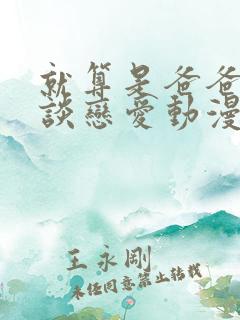 就算是爸爸
談戀愛動漫
王永剛
未任同意禁止转载